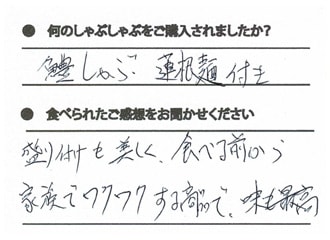 ● 何のしゃぶしゃぶをご購入されましたか？
鱧しゃぶ 蓮根麺付き
● 食べられたご感想をお聞かせください
盛り付けも美しく、食べる前から
家族でワクワクする前で、味も最高